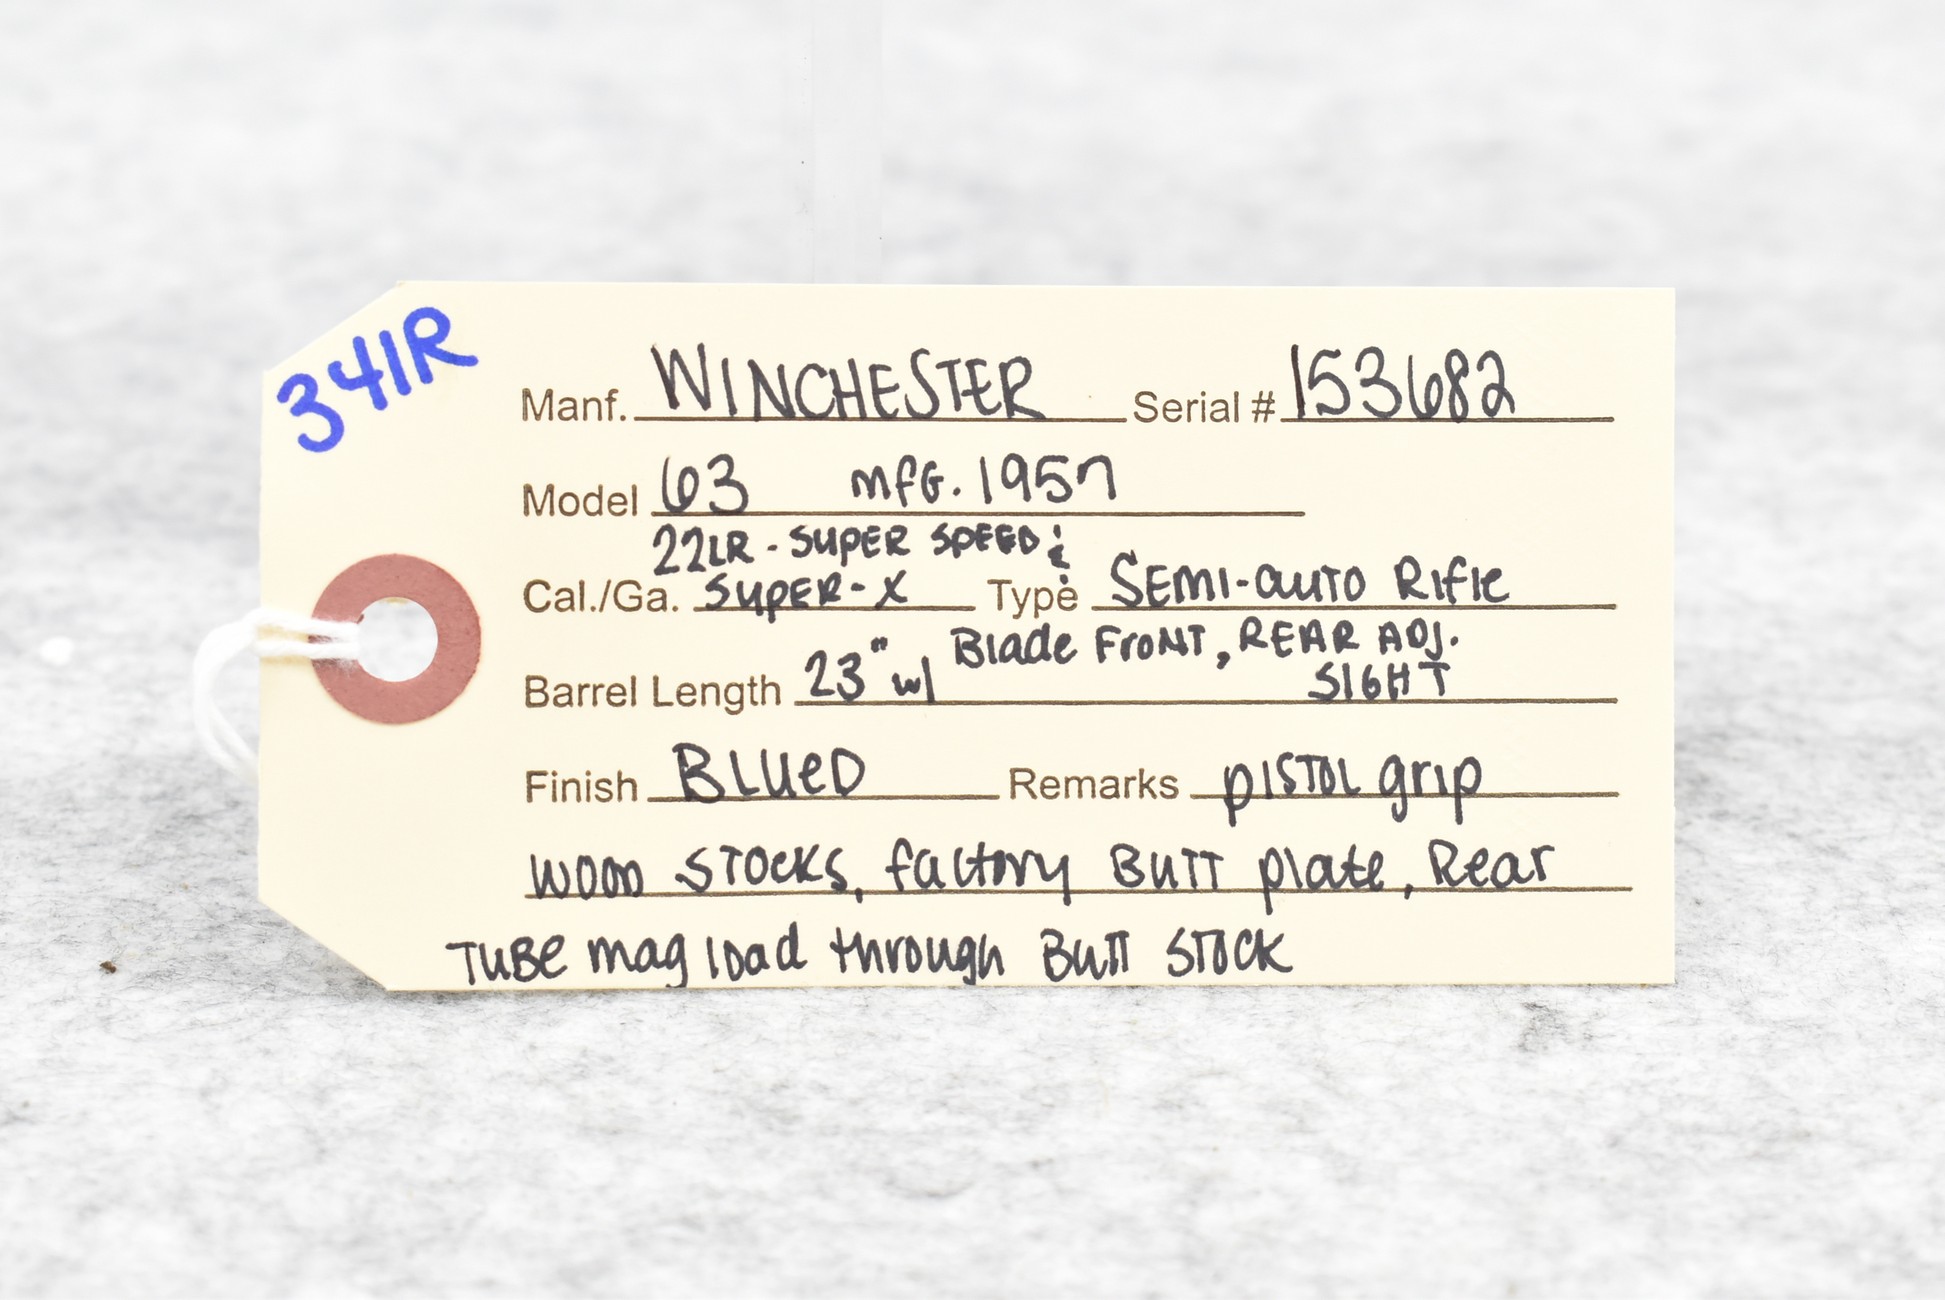 341R
Manf. WINCHESTER Serial # 153682
Model 63 mfG. 1957
22LR - SUPER SPEED &
Cal./Ga. SUPER-X Type SEMI-AUTO Rifle
Blade FRONT, REAR ADJ.
Barrel Length 23" w/ SIGHT
Finish BLUED Remarks PISTOL grip
WOOD STOCKS, factory BUTT plate, Rear
TUBE mag load through BUTT STOCK